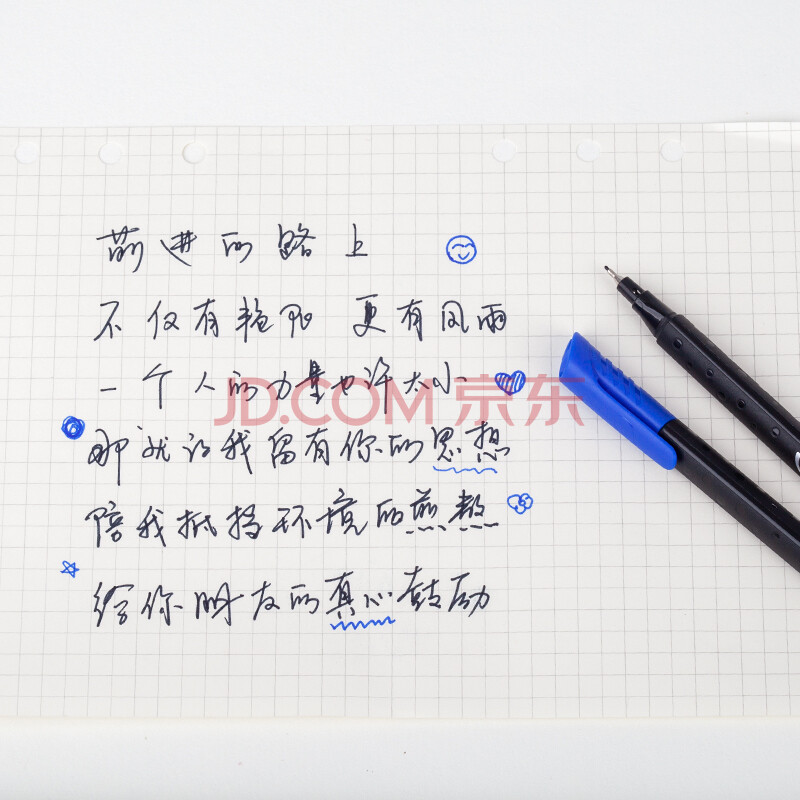 前进的路上
不仅有艳阳 更有风雨
一个人的力量也许太小
JD.COM 京东
那就让我留有你的思想
陪我抵挡环境的煎熬
给你朋友的真心鼓励